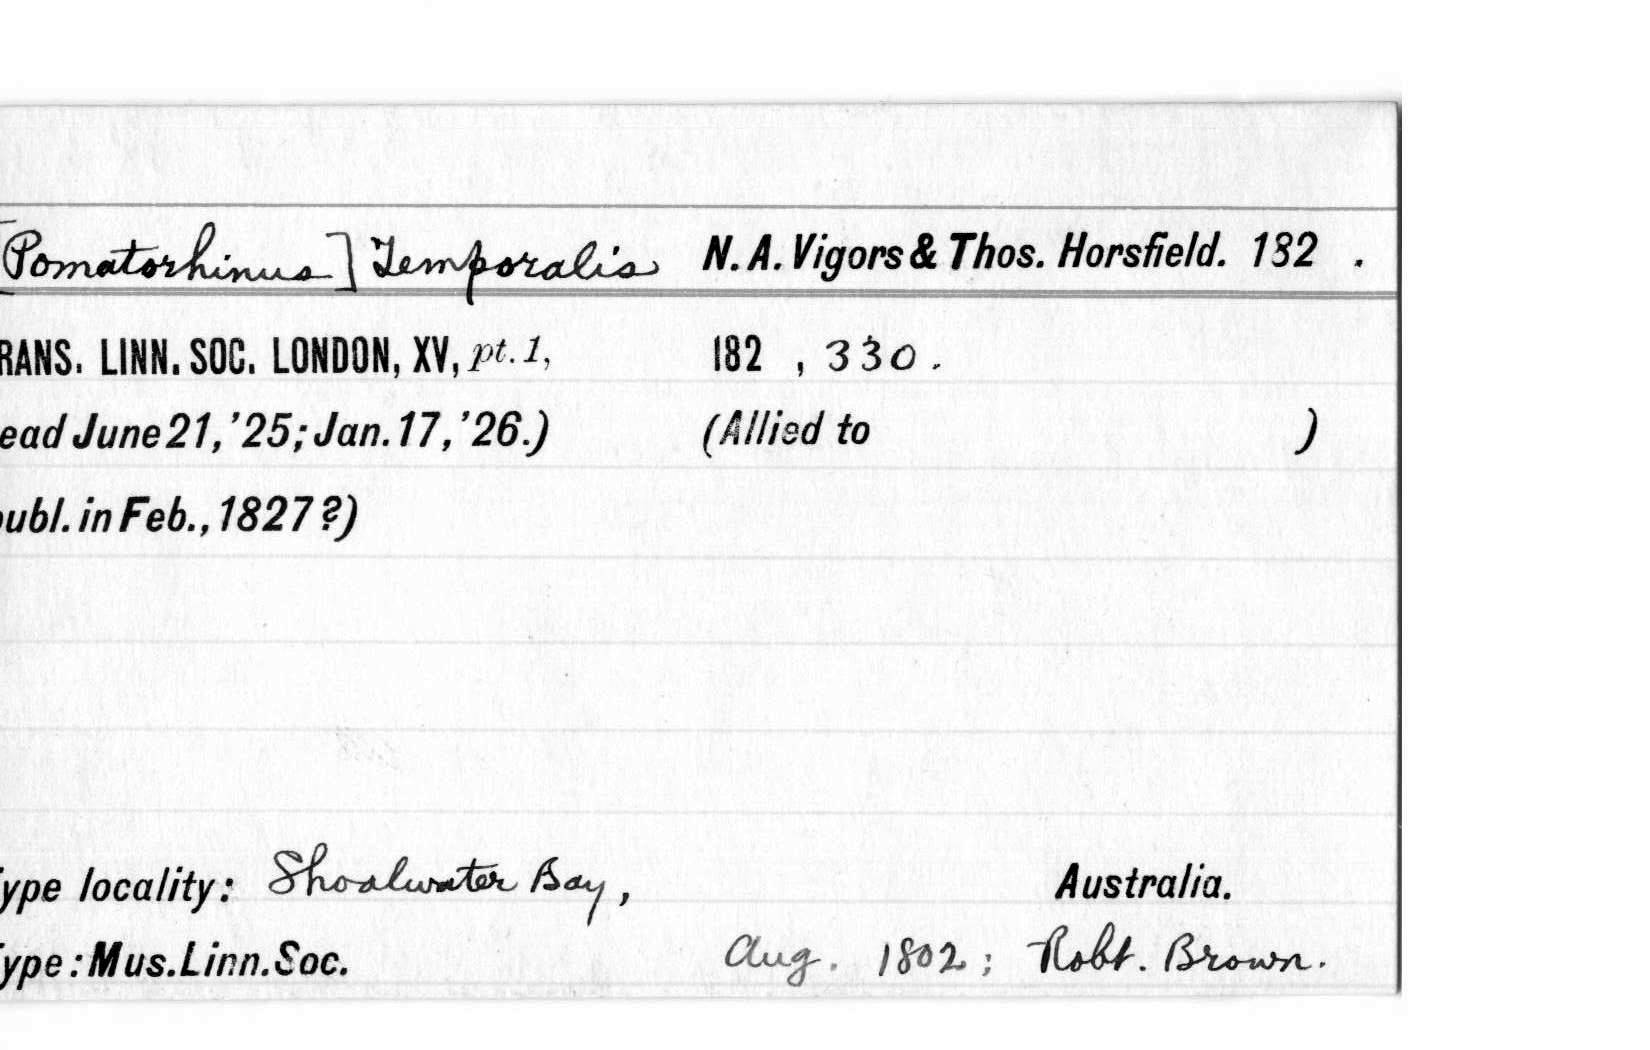 [Pomatorhinus] Temporalis N. A. Vigors & Thos. Horsfield. 182 .
RANS. LINN. SOC. LONDON, XV, pt. 1, 182 , 330.
ead June 21, '25; Jan. 17, '26.) (Allied to )
publ. in Feb., 1827?)
ype locality: Shoalwater Bay, Australia.
ype: Mus. Linn. Soc. Aug. 1802; Robt. Brown.